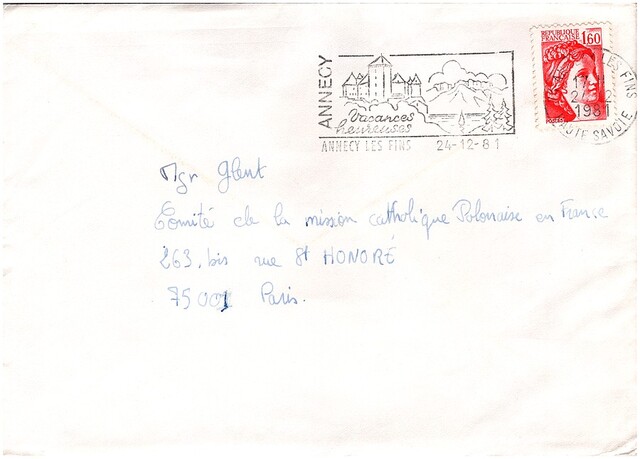 ANNECY
Vacances
heureuses
ANNECY LES FINS 24-12-81
REPUBLIQUE
FRANÇAISE
1,60
POSTES
LES FINS
17
1981
HAUTE SAVOIE
Mgr Glent
Comité de la mission catholique Polonaise en France
263, bis rue St HONORÉ
75001 Paris.